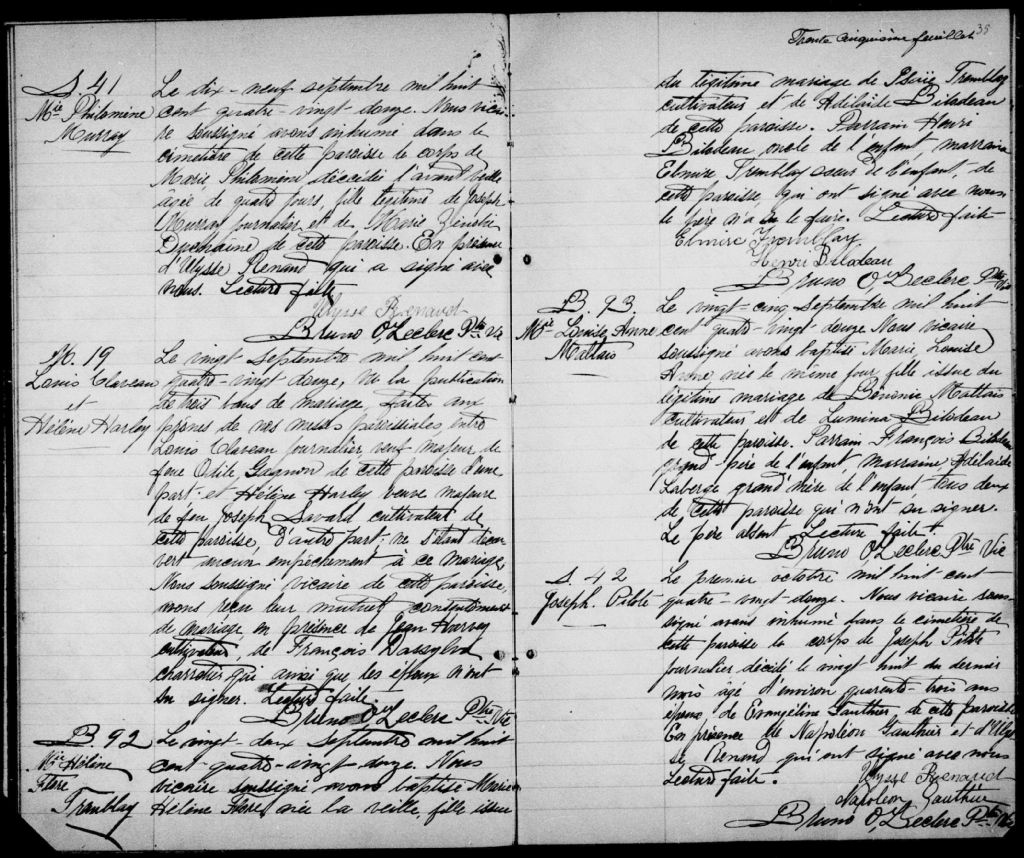 S. 41
Mie Philomène
Murray
Le dix-neuf septembre mil huit
cent quatre-vingt-douze. Nous vicai-
re soussigné avons inhumé dans le
cimetière de cette paroisse le corps de
Marie Philomène décédée l'avant veille
âgée de quatre jours, fille légitime de Joseph
Murray journalier et de Marie
Duchaine de cette paroisse. En présence
d'Ulysse Renaud qui a signé avec
nous. Lecture faite
Ulysse Renaud
Bruno O. Leclerc Ptre Vic
M. 19
Louis Claveau
et
Hélène Harley
Le vingt septembre mil huit cent
quatre-vingt douze, vu la publication
de trois bans de mariage faite aux
prônes de nos messes paroissiales, entre
Louis Claveau journalier, veuf majeur de
feue Odile Gagnon de cette paroisse d'une
part; et Hélène Harley veuve majeure
de feu Joseph Savard cultivateur de
cette paroisse, d'autre part; ne s'étant décou-
vert aucun empêchement à ce mariage,
Nous soussigné vicaire de cette paroisse,
avons reçu leur mutuel consentement
de mariage en présence de Jean Harvey
cultivateur, de François Dassylva
charretier qui ainsi que les époux n'ont
su signer. Lecture faite
Bruno O. Leclerc Ptre Vic
B. 92
Mie Hélène
Flore
Tremblay
Le vingt-deux septembre mil huit
cent-quatre-vingt douze. Nous
vicaire soussigné avons baptisé Marie
Hélène Flore, née la veille, fille issue
Trente cinquième feuillet 35
du légitime mariage de Tremblay
cultivateur et de Adélaïde Bilodeau
de cette paroisse. Parrain Henri
Bilodeau, oncle de l'enfant, marraine
Elmire Tremblay sœur de l'enfant, de
cette paroisse, qui ont signé avec nous
le père n'a su le faire. Lecture faite
Elmire Tremblay
Henri Bilodeau
Bruno O. Leclerc Ptre Vic
B. 93
Mie Louise Anne
Mattais
Le vingt-cinq septembre mil huit
cent quatre-vingt-douze Nous vicaire
soussigné avons baptisé Marie Louise
Anne née le même jour fille issue du
légitime mariage de Bénonie Mattais
cultivateur et de Lumina Bilodeau
de cette paroisse. Parrain François Bilodeau
grand père de l'enfant, marraine Adélaïde
Laberge grand'mère de l'enfant tous deux
de cette paroisse qui n'ont su signer.
Le père absent. Lecture faite.
Bruno O. Leclerc Ptre Vic
S. 42
Joseph. Pilote
Le premier octobre mil huit cent-
quatre-vingt-douze. Nous vicaire sous-
signé avons inhumé dans le cimetière de
cette paroisse le corps de Joseph Pilote
journalier décédé le vingt huit du dernier
mois âgé d'environ quarante-trois ans
époux de Evangéline Gauthier de cette paroisse
En présence de Napoléon Gauthier et d'Ulys-
se Renaud qui ont signé avec nous
Lecture faite.
Ulysse Renaud
Napoléon Gauthier
Bruno O. Leclerc Ptre Vic